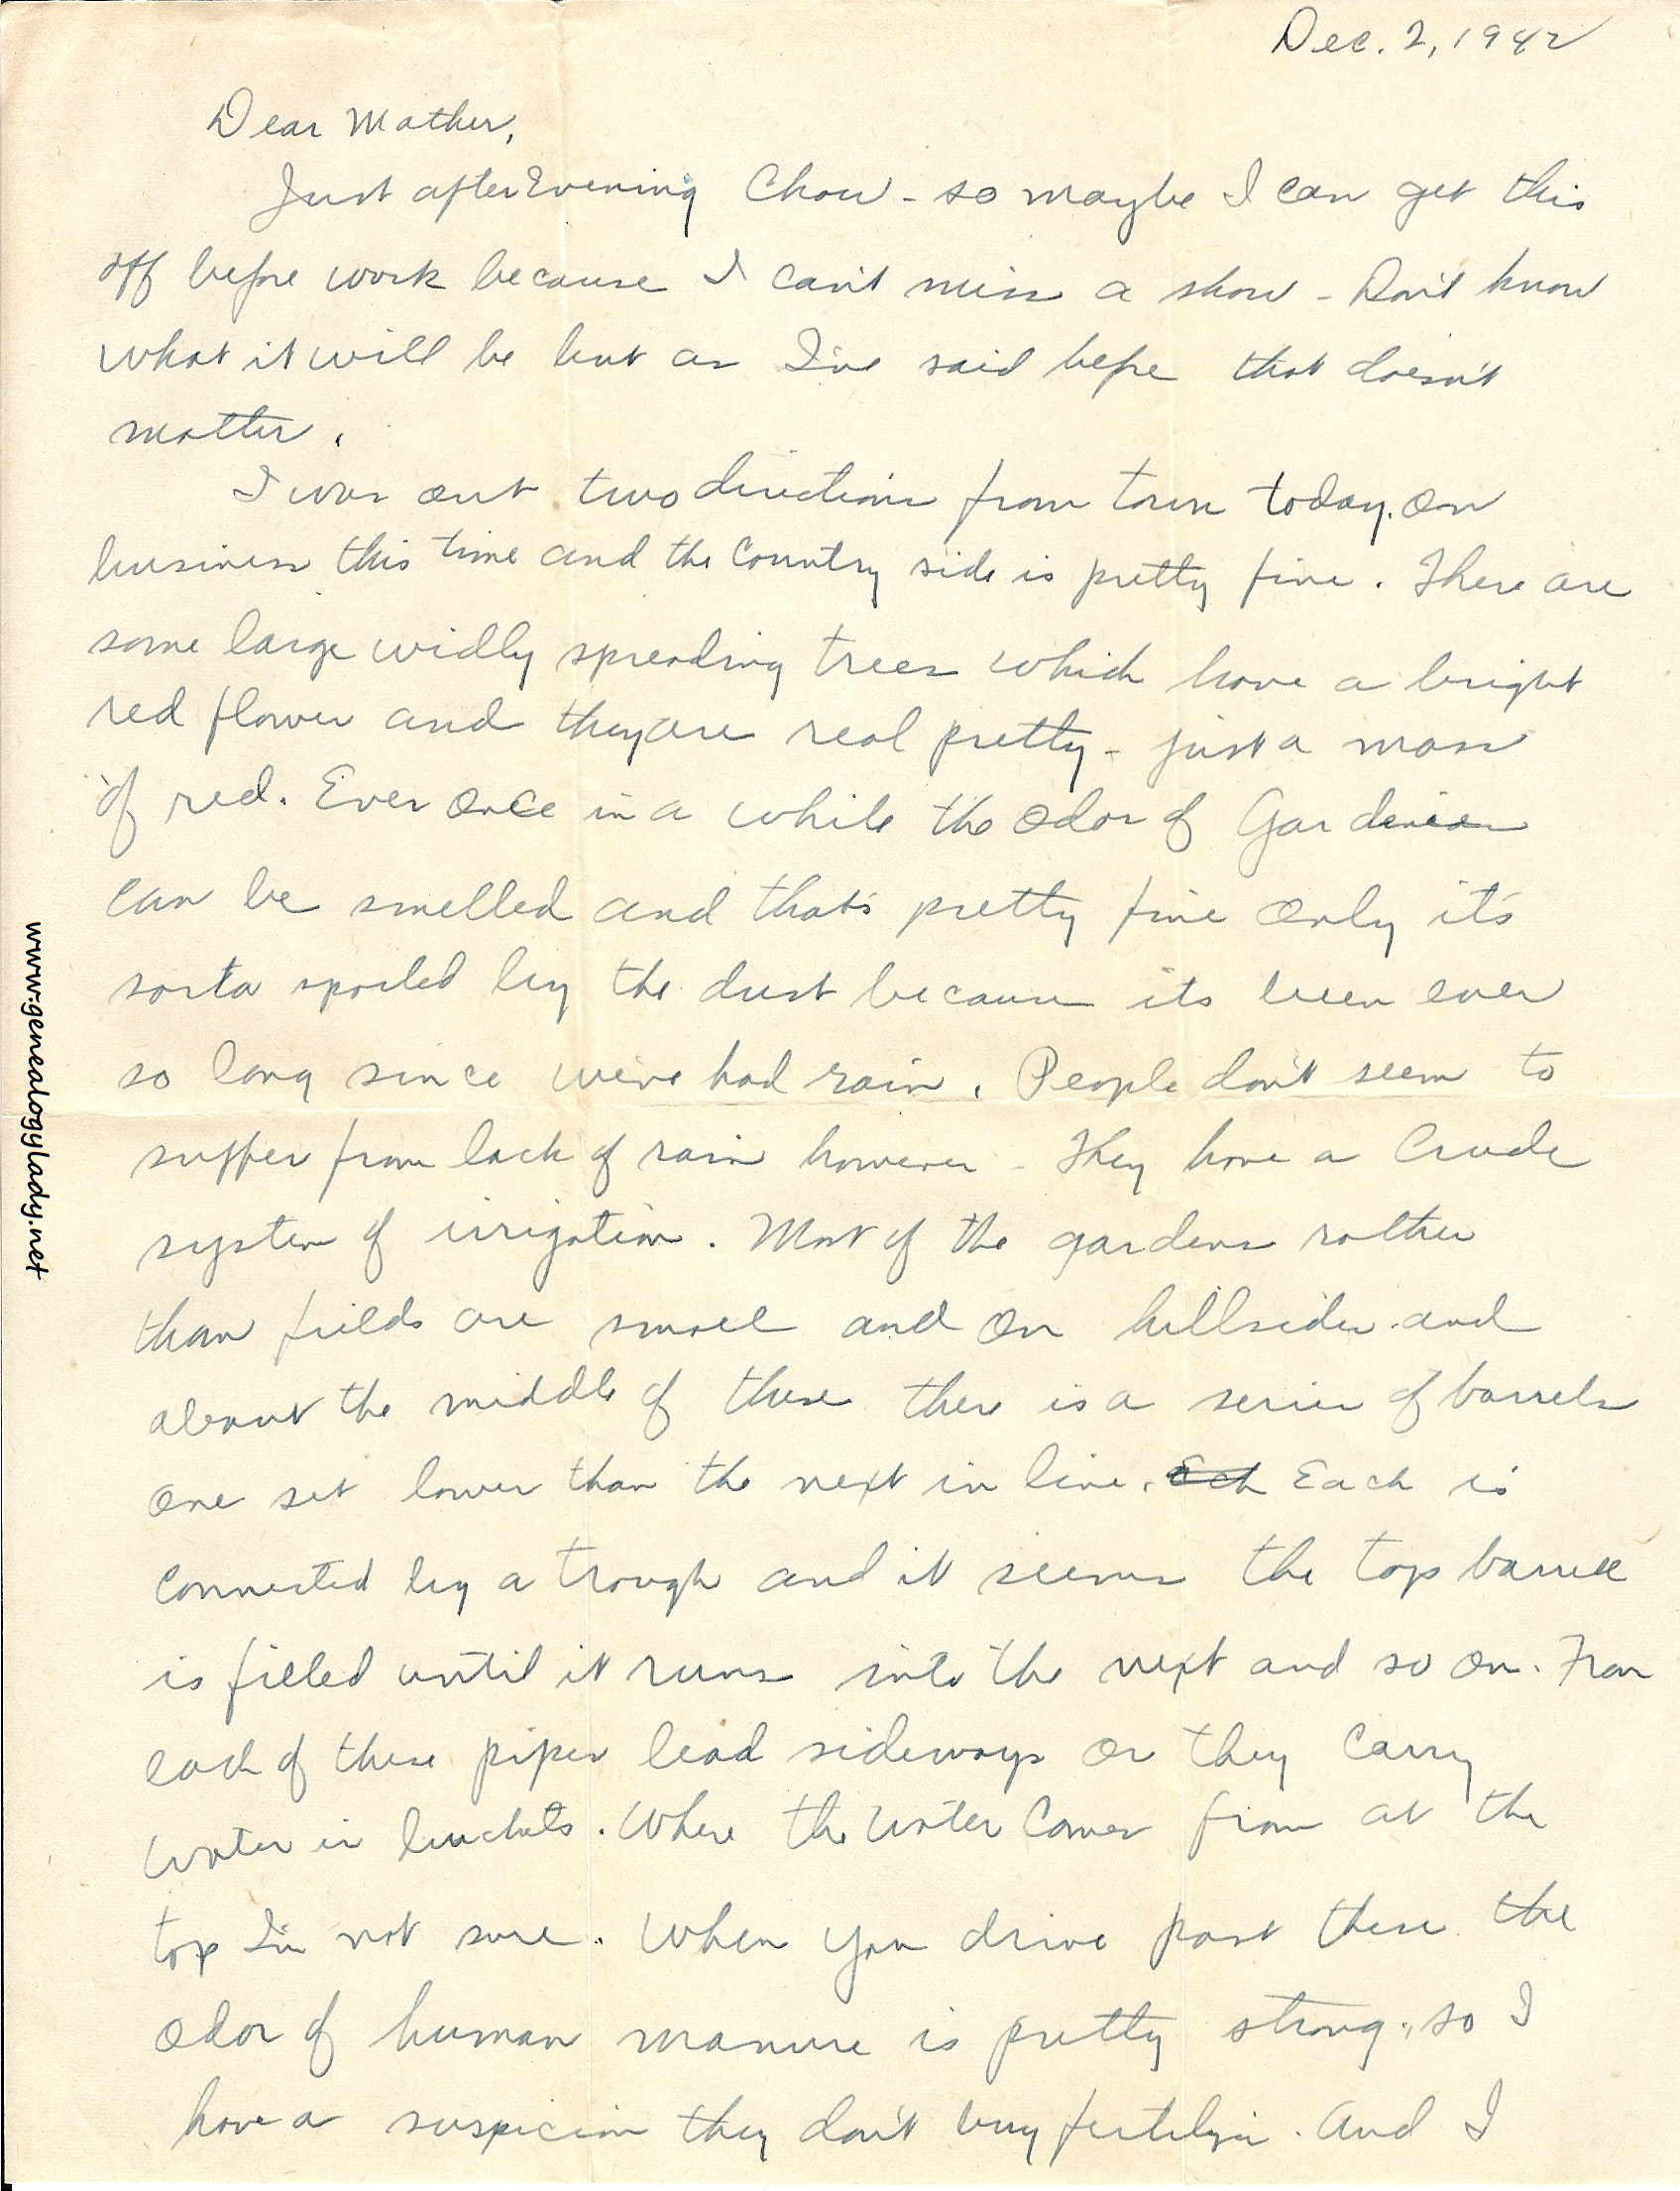 Dec. 2, 1942
Dear Mother,
Just after Evening Chow - so maybe I can get this
off before work because I can't miss a show - Don't know
what it will be but as I've said before that doesn't
matter.
I was out two directions from town today. On
business this time and the country side is pretty fine. There are
some large widly spreading trees which have a bright
red flower and they are real pretty - just a mass
of red. Ever once in a while the odor of Gardenias
can be smelled and that's pretty fine only it's
sorta spoiled by the dust because its been ever
so long since we've had rain. People don't seem to
suffer from lack of rain however - They have a crude
system of irrigation. Most of the gardens rather
than fields are small and on hillsides and
about the middle of these there is a series of barrels
one set lower than the next in line. Ech Each is
connected by a trough and it seems the top barrell
is filled until it runs into the next and so on. From
each of these pipes lead sideways or they carry
water in buckets. Where the water comes from at the
top I'm not sure. When you drive past these the
odor of human manure is pretty strong, so I
have a suspicion they don't buy fertilizer. And I
www.genealogylady.net